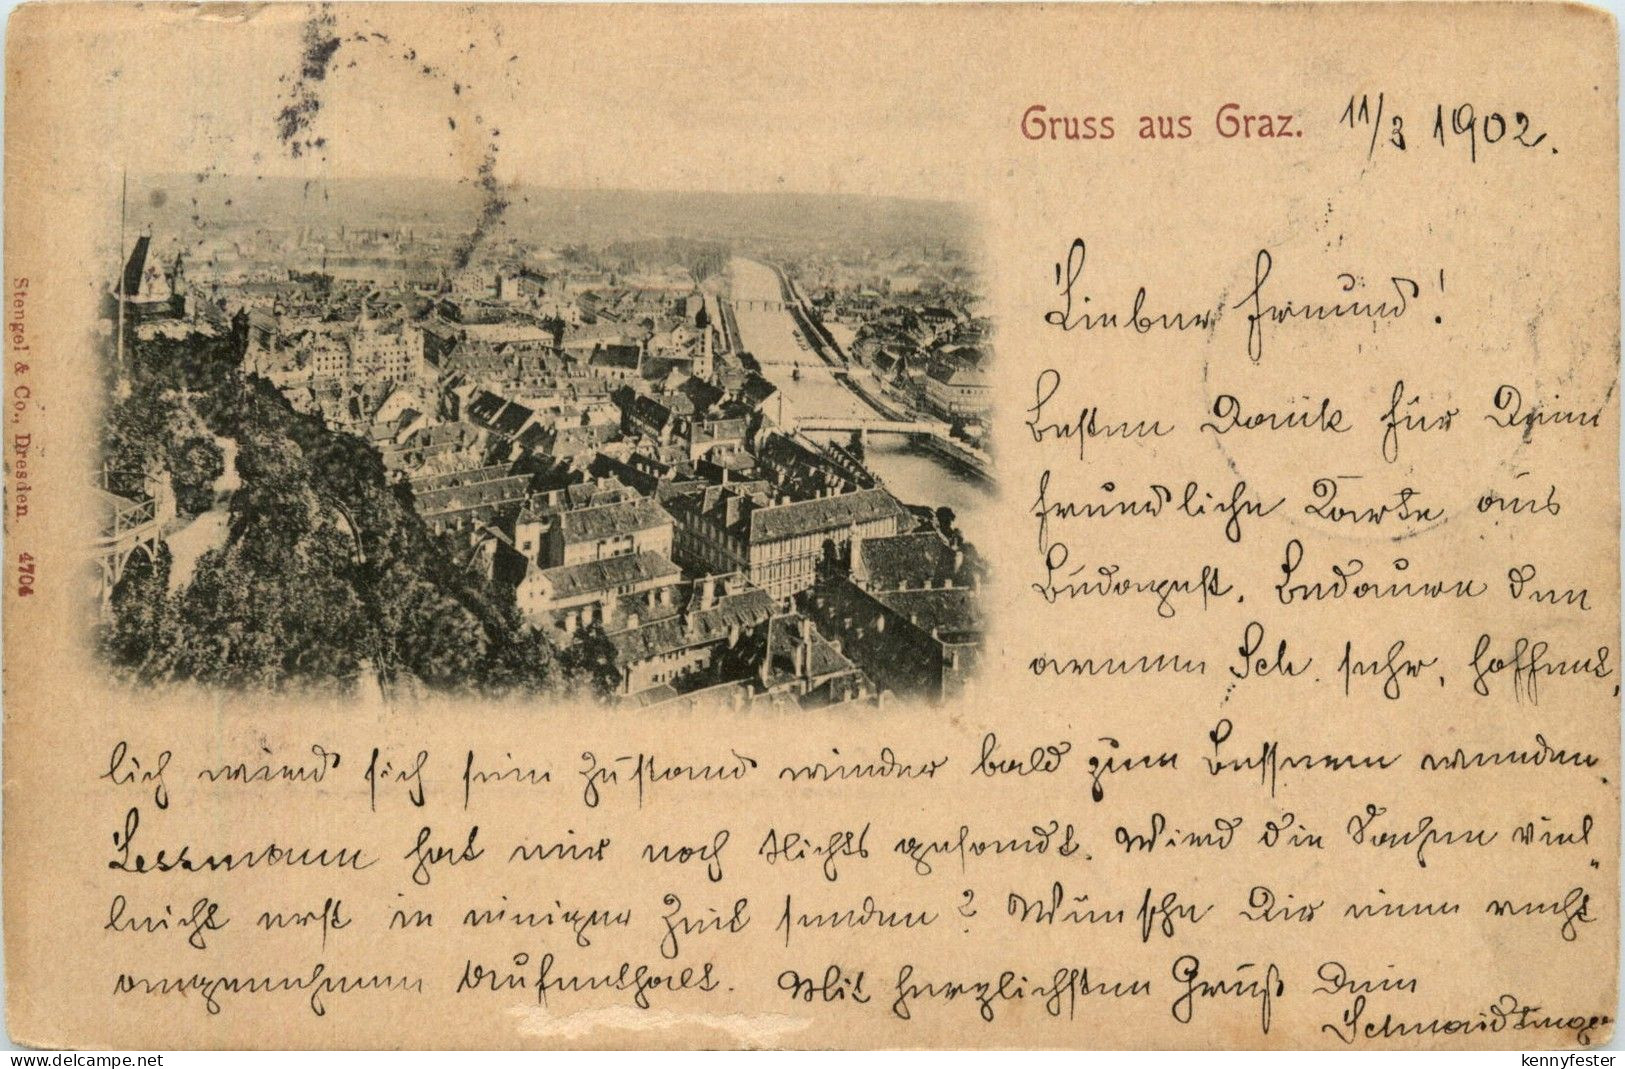 Gruss aus Graz. 11/3 1902.
Stengel & Co., Dresden. 4704
Lieber Freund!
Besten Dank für Deine
freundliche Karte aus
Budapest. Bedauere den
armen Sch. sehr, hoffent,
lich wird sich sein Zustand wieder bald zum Besseren wenden.
Lessmann hat mir noch Nichts gesandt. Wird die Sachen viel„
leicht erst in einiger Zeit senden? Wünsche Dir einen recht
angenehmen Aufenthalt. Mit herzlichstem Gruß Dein
kennyfester